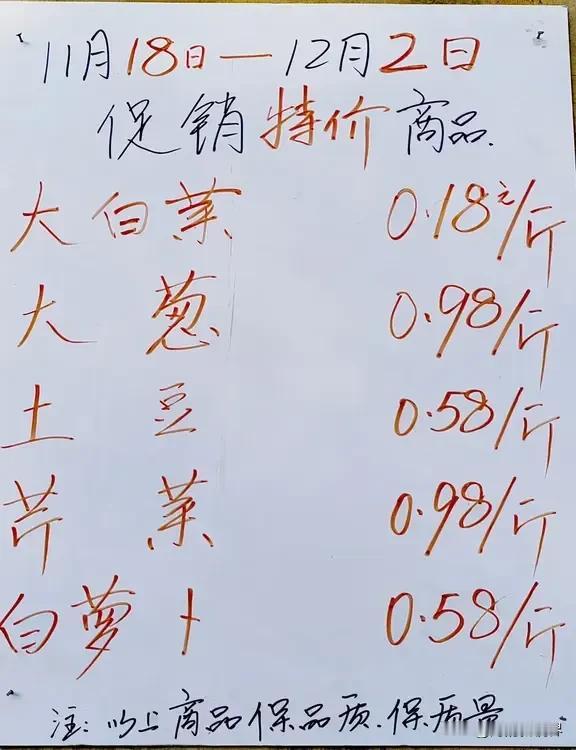 11月18日—12月2日
促销特价商品.
大白菜 0.18元/斤
大葱 0.98/斤
土豆 0.58/斤
芹菜 0.98/斤
白萝卜 0.58/斤
注:以上商品保品质.保质量